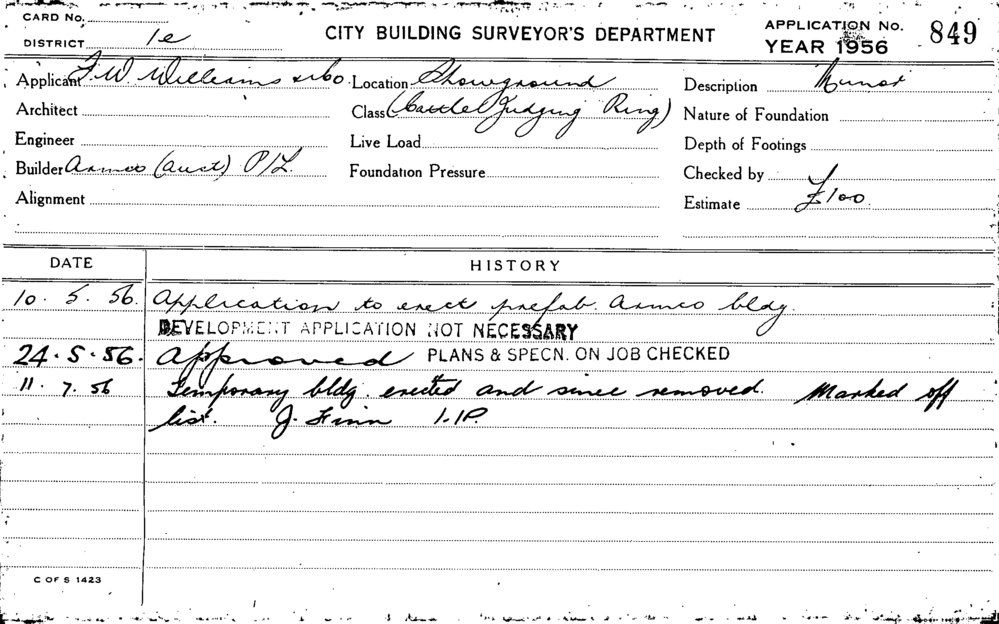 CARD No.
DISTRICT 1e
CITY BUILDING SURVEYOR'S DEPARTMENT
APPLICATION No. 849
YEAR 1956
Applicant F.W. Williams & Co. Location Showground Description Minor
Architect Class (Cattle Judging Ring) Nature of Foundation
Engineer Live Load Depth of Footings
Builder Armco (Aust) P/L. Foundation Pressure Checked by
Alignment Estimate £100
DATE HISTORY
10. 5. 56. Application to erect prefab. Armco bldg.
DEVELOPMENT APPLICATION NOT NECESSARY
24. 5. 56. Approved PLANS & SPECN. ON JOB CHECKED
11. 7. 56 Temporary bldg. erected and since removed. Marked off
list. J. Finn
C OF S 1423